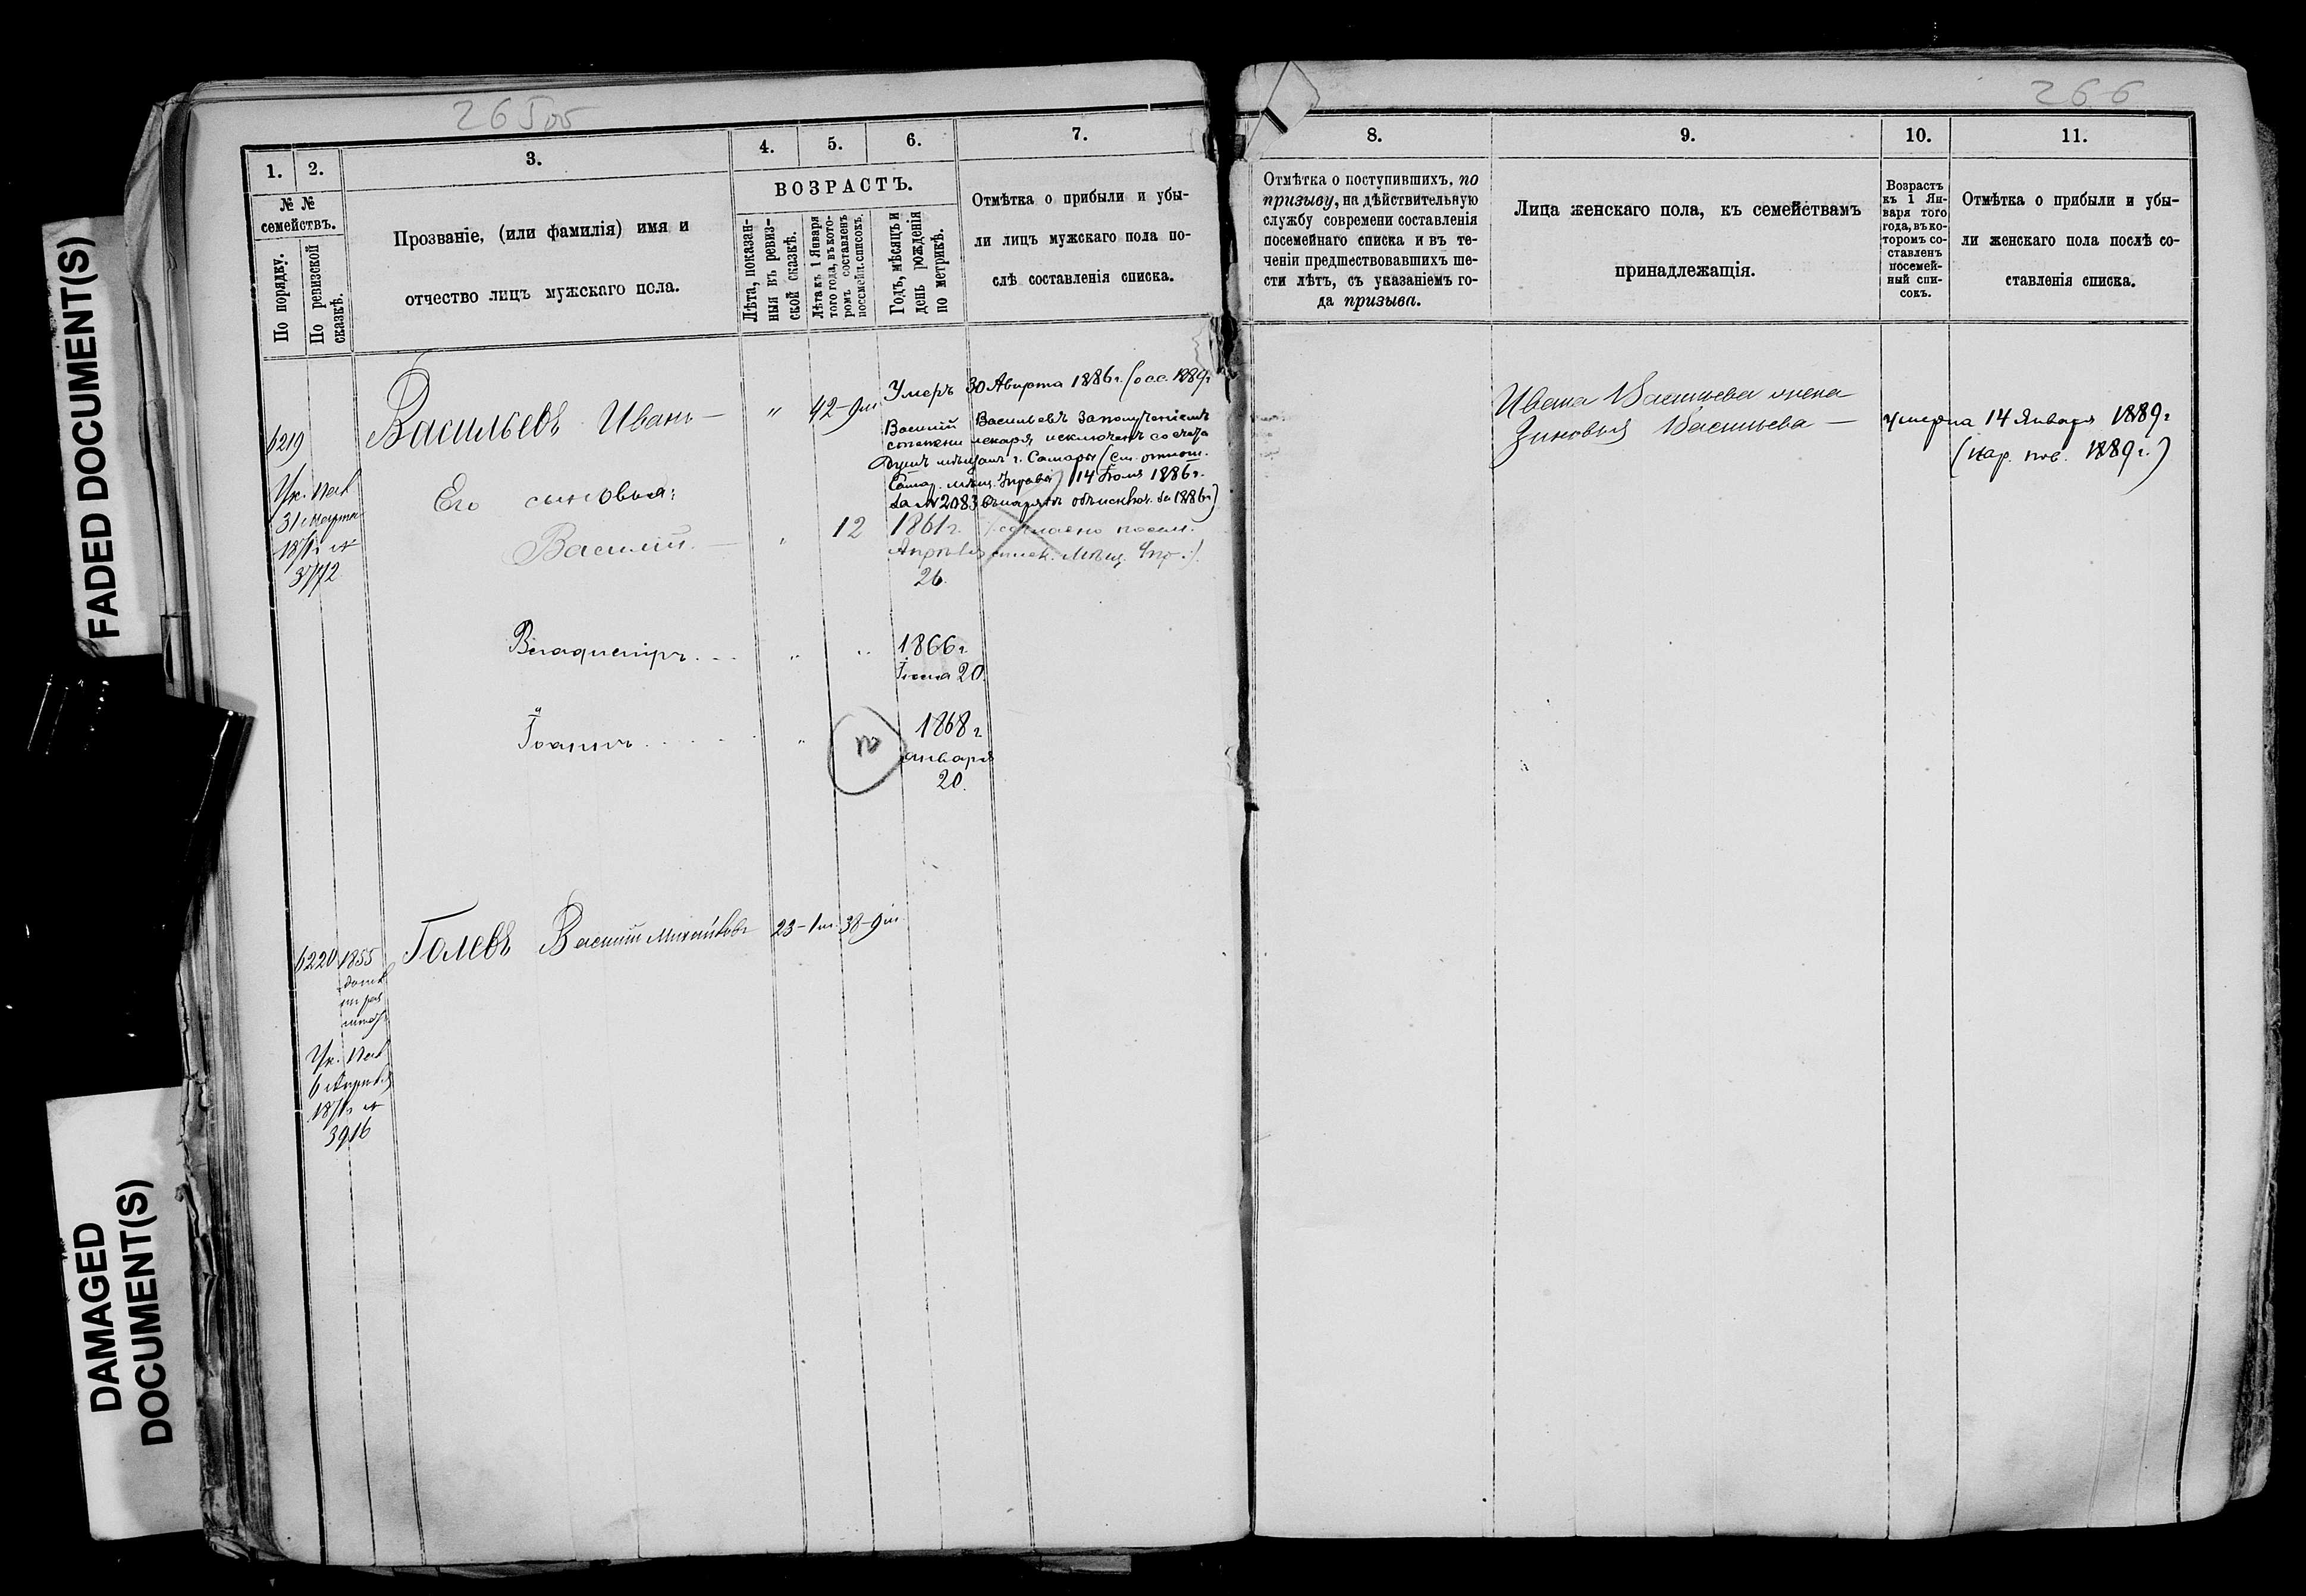 FADED DOCUMENT(S)
DAMAGED
DOCUMENT(S)
265об
1.
2.
3.
4.
5.
6.
7.
№ №
семействъ.
По порядку.
По ревизской
сказкѣ.
Прозваніе, (или фамилія) имя и
отчество лицъ мужскаго пола.
ВОЗРАСТЪ.
Лѣта, показан-
ныя въ ревиз-
ской сказкѣ.
Лѣта къ 1 Января
того года, въ кото-
ромъ составленъ
посемейн. списокъ.
Годъ, мѣсяцъ и
день рожденія
по метрикѣ.
Отмѣтка о прибыли и убы-
ли лицъ мужскаго пола по-
слѣ составленія списка.
6219
Ук. Пал
31 Марта
1871г №
3772
Васильевъ Иванъ — " 42-9м
Умеръ 30 Августа 1886г. (осс. 1889г
Василий Васильевъ за полученіемъ
степени лекаря исключенъ со счета
душъ мѣщанъ г. Самары (см. отнош.
Самар. мѣщ. Управы 14 Іюля 1886г.
за № 2083 въ нарядѣ объ исключ. за 1886г)
Его сыновья:
Василій. — " 12 1861г. согласно посем.
Апрѣля списк. Мѣщ. Упр.
26.
Владиміръ. " " 1866г
Іюля 20.
Іоаннъ " 1868г
января
20.
6220 1855
Голевъ Василій Михайловъ 23-1м. 38-9м.
Ук. Пал
6 Апрѣля
1871г №
3916
266
8.
9.
10.
11.
Отмѣтка о поступившихъ, по
призыву, на дѣйствительную
службу современи составленія
посемейнаго списка и въ те-
ченіи предшествовавшихъ ше-
сти лѣтъ, съ указаніемъ го-
да призыва.
Лица женскаго пола, къ семействамъ
принадлежащія.
Возрастъ
къ 1 Ян-
варя того
года, въ ко-
торомъ со-
ставленъ
посемей-
ный спи-
сокъ.
Отмѣтка о прибыли и убы-
ли женскаго пола послѣ со-
ставленія списка.
Ивана Васильева жена
Зиновья Васильева —
умерла 14 Января 1889г
(кар. пов. 1889г.)